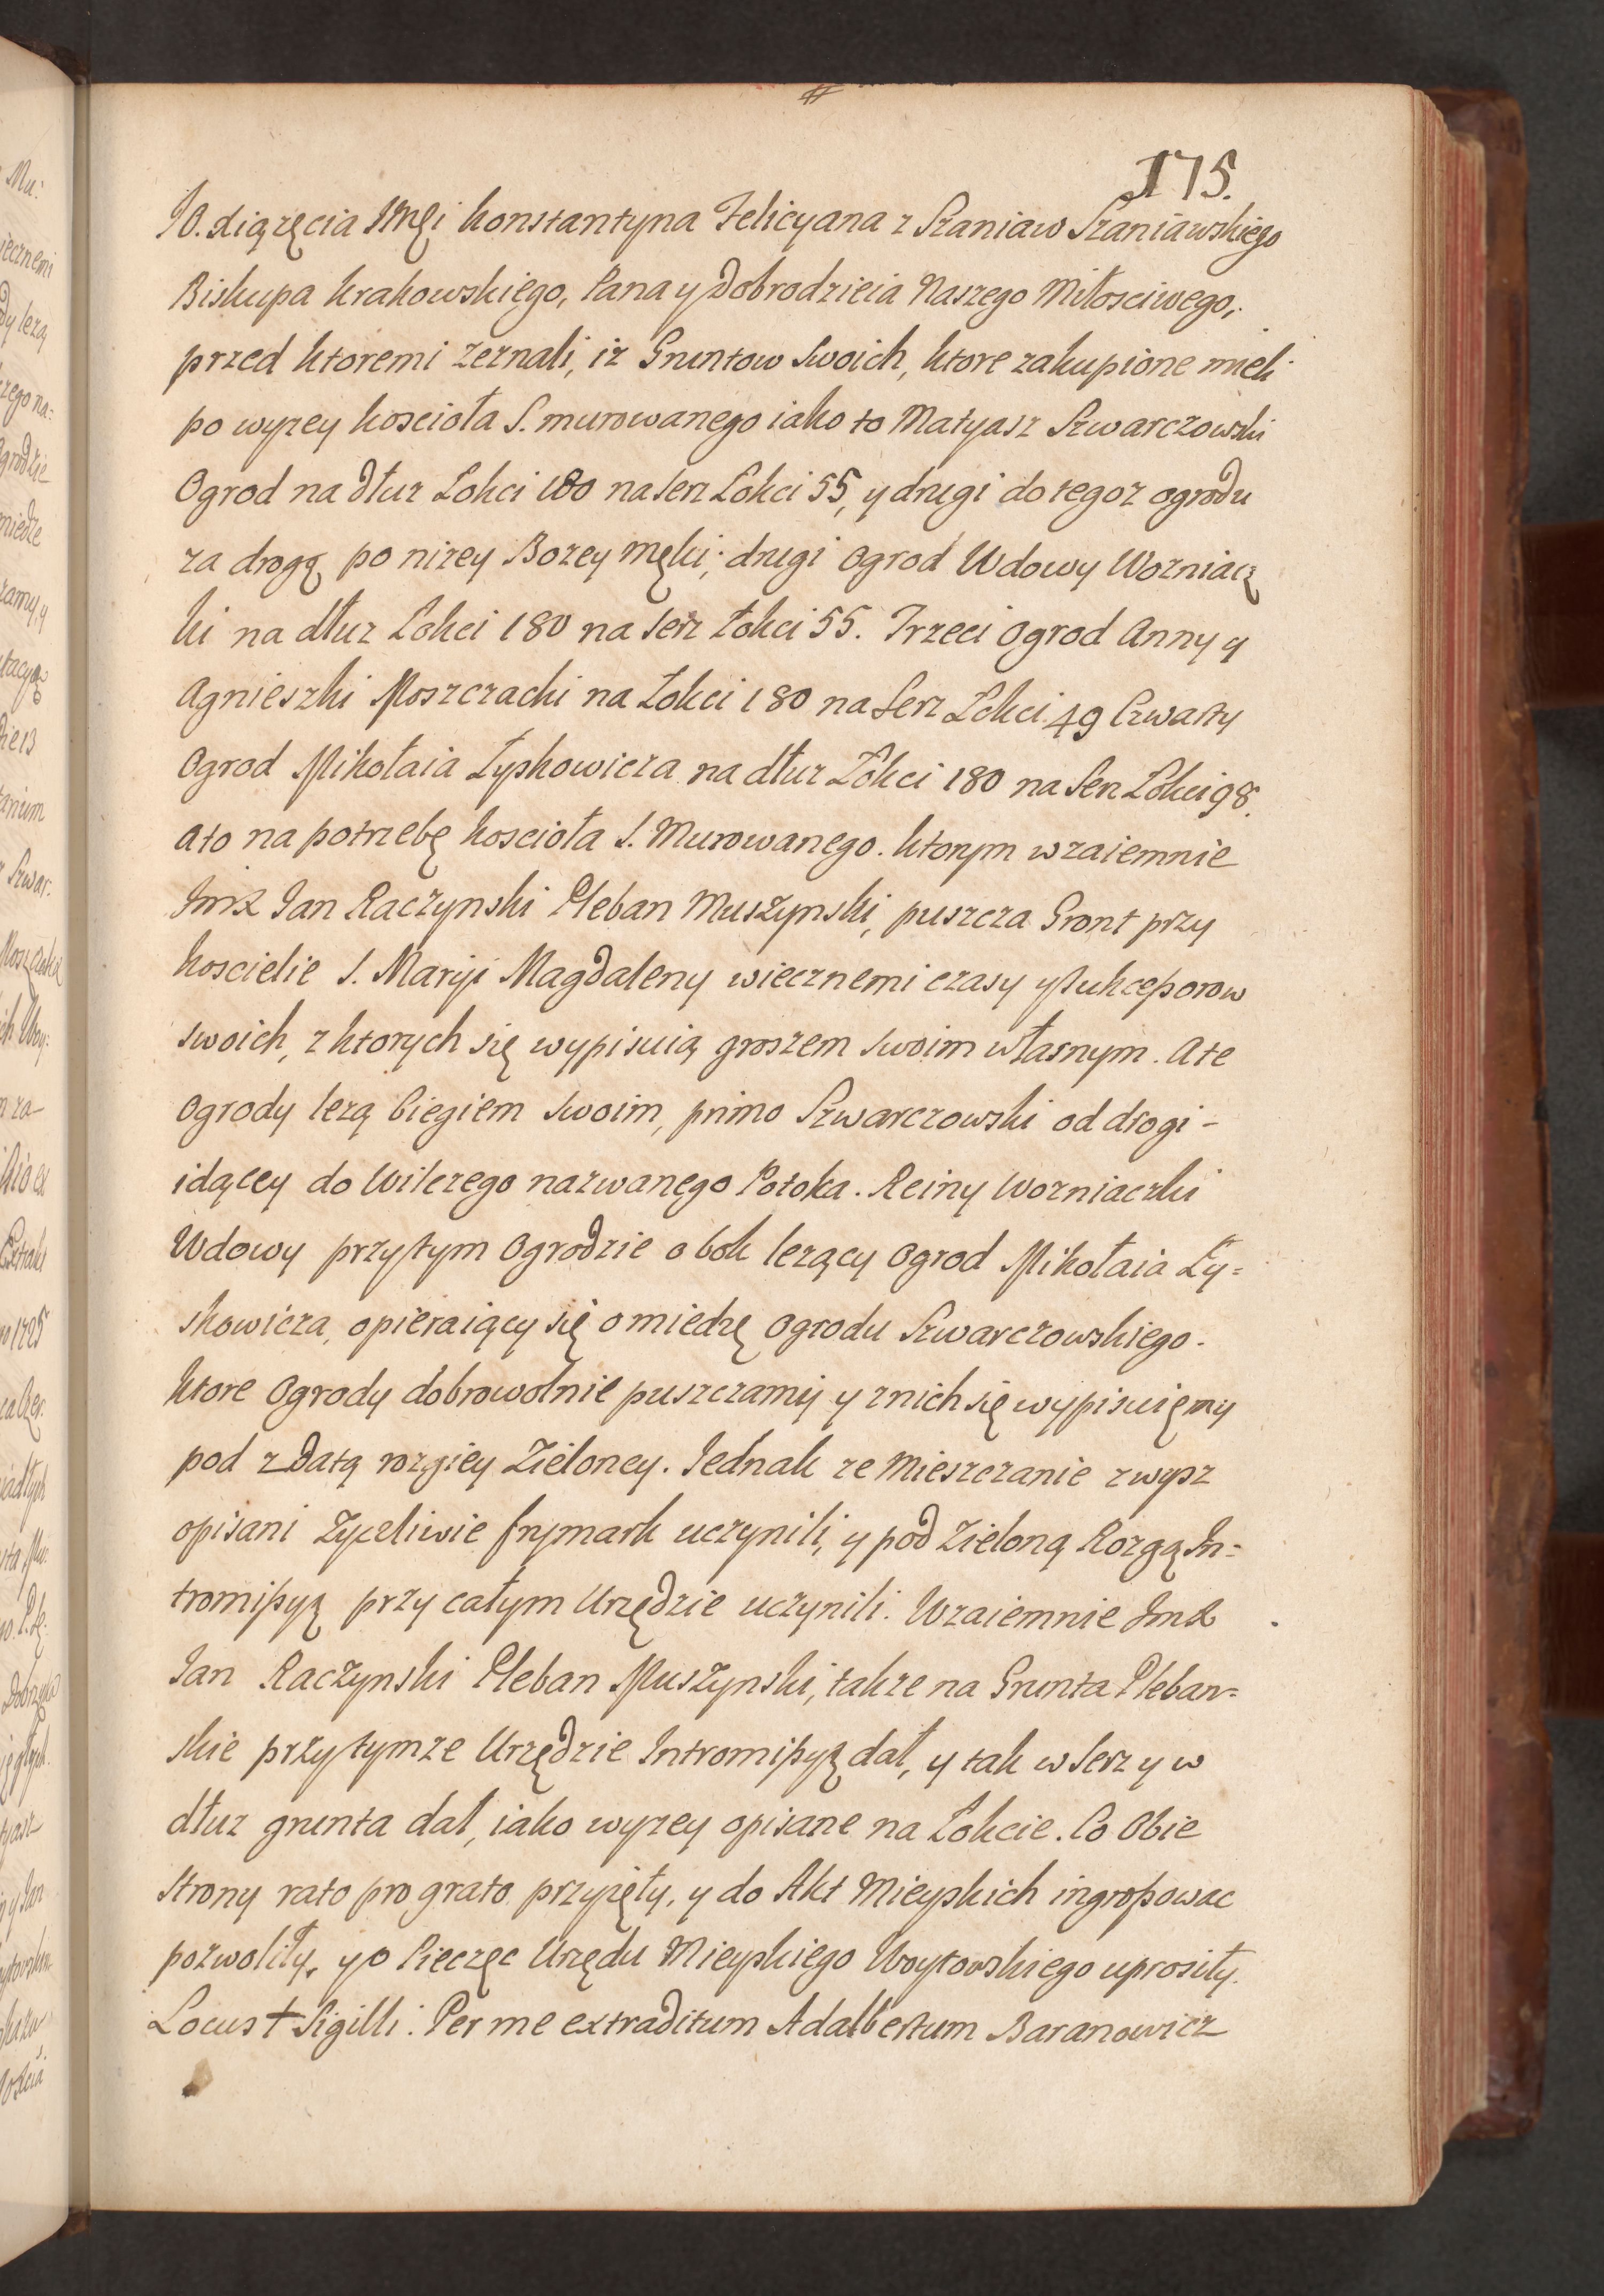 175.
JO. Xiążęcia JMęi Konstantyna Felicyana z Szaniaw Szaniawskiego
Biskupa Krakowskiego, Pana y Dobrodzieia Naszego Miłosciwego,
przed ktoremi zeznali, iz Gruntow Swoich, ktore zakupione mieli
po wyzey Koscioła S. murowanego iako to Matyasz Szwarczowski
Ogrod na dłuz Łokci 180 na serz Łokci 55, y drugi do tegoz ogrodu
za drogą po nizey Bozey męki; drugi Ogrod Wdowy Wozniacz
ki na dłuz Łokci 180 na Serz Łokci 55. Trzeci Ogrod Anny y
Agnieszki Moszczacki na Łokci 180 na Serz Łokci 49 Czwarty
Ogrod Mikołaia Łyskowicza na dłuz Łokci 180 na Serz Łokci 98.
a to na potrzebę Koscioła S. Murowanego. Ktorym wzaiemnie
JmX Jan Raczynski Pleban Muszynski, puszcza Gront przy
Koscielie S. Maryi Magdaleny wiecznemi czasy y Sukceßorow
swoich, z ktorych się wypisuią groszem swoim własnym. A te
Ogrody lezą biegiem swoim, primo Szwarczowski od drogi -
idącey do Wilczego nazwanego Potoka. Reiny Wozniaczki
Wdowy przy tym Ogrodzie obok lezący Ogrod Mikołaia Ły=
skowicza, opieraiący się o miedzę Ogrodu Szwarczowskiego.
Ktore Ogrody dobrowolnie puszczamy y z nich się wypisuięmy
pod zdatą rozgiey Zieloney. Jednak ze Mieszczanie zwysz
opisani Zyczliwie frymark uczynili, y pod Zieloną Rozgą In=
tromißyą przy całym Urzędzie uczynili. Wzaiemnie JmX
Jan Raczynski Pleban Muszynski, takze na Grunta Pleban=
skie przy tymze Urzędzie Intromißyą dał, y tak w Serz y w
dłuz grunta dał, iako wyzey opisane na Łokcie. Co Obie
Strony rato pro grato przyięły, y do Akt Mieyskich ingroßowac
pozwoliły, y o Pieczęc Urzędu Mieyskiego Woytowskiego uprosiły.
Locus † Sigilli. Per me extraditum Adalbertum Baranowicz